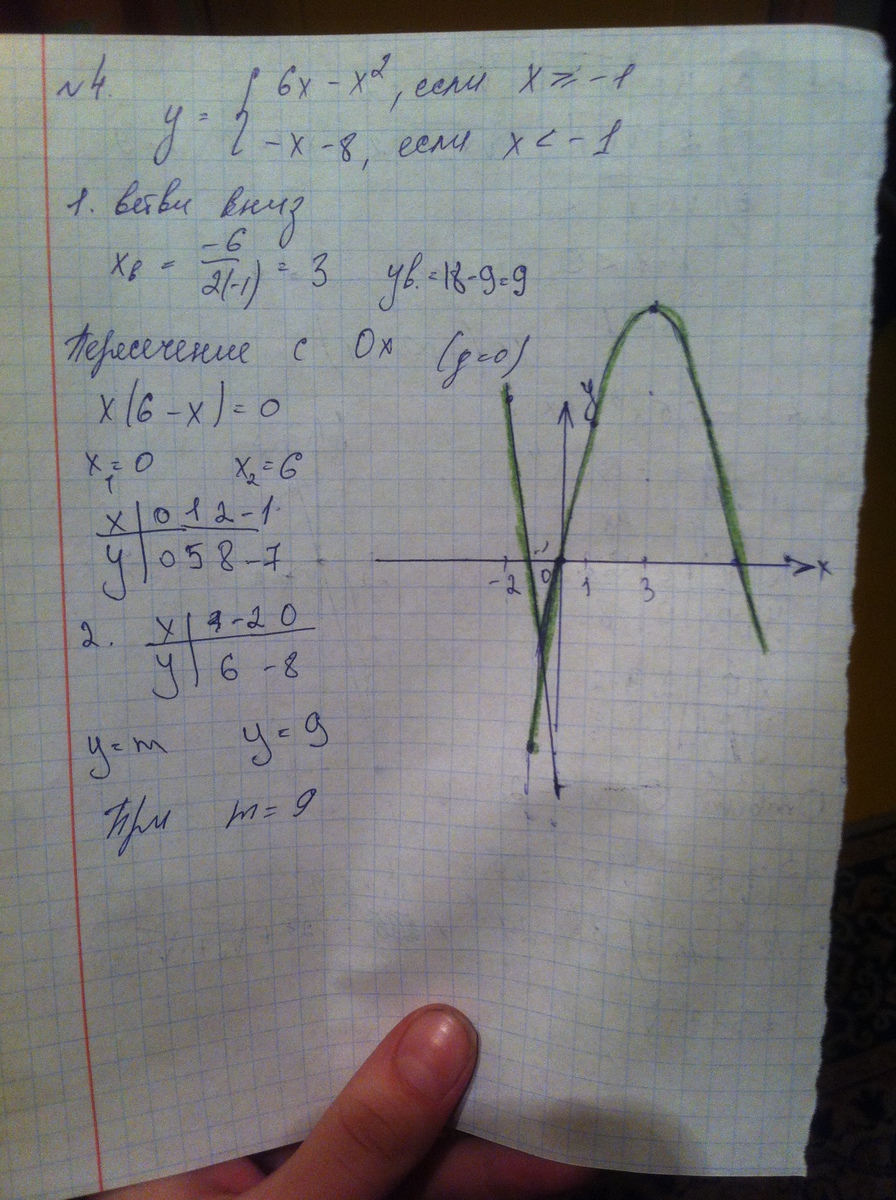 №4.
y = { 6x - x², если x ≥ -1
-x - 8, если x < -1
1. ветви вниз
xв = -6/2(-1) = 3 yв. = 18-9=9
Пересечение с Ox (y=0)
x(6 - x) = 0
x₁ = 0 x₂ = 6
x | 0 1 2 -1
y | 0 5 8 -7
2. x | -2 0
y | 6 -8
y = m y = 9
При m = 9
y
x
-2 -1 0 1 3